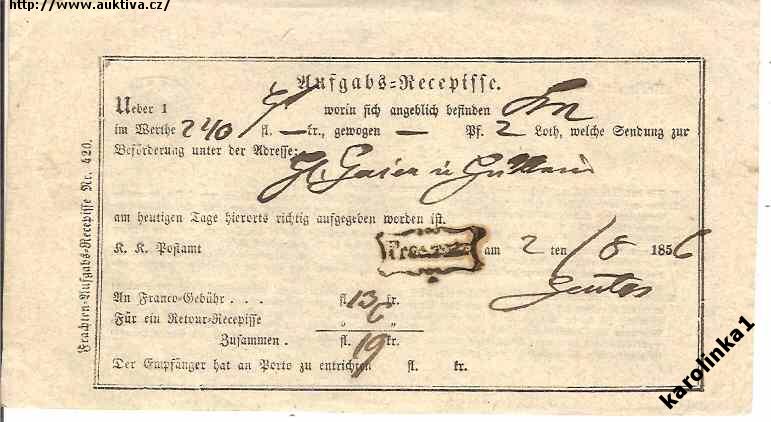 http://www.auktiva.cz/
Aufgabs-Recepisse.
Ueber 1 worin sich angeblich befinden
im Werthe 240 fl. — kr., gewogen — Pf. 2 Loth, welche Sendung zur
Beförderung unter der Adresse:
am heutigen Tage hierorts richtig aufgegeben worden ist.
K. K. Postamt am 2 ten /8 1856
An Franco-Gebühr . . . fl. 13 kr.
Für ein Retour-Recepisse „ 6 „
Zusammen . fl. 19 kr.
Der Empfänger hat an Porto zu entrichten fl. kr.
Frachten-Aufgabs-Recepisse Nr. 420.
karolinka1